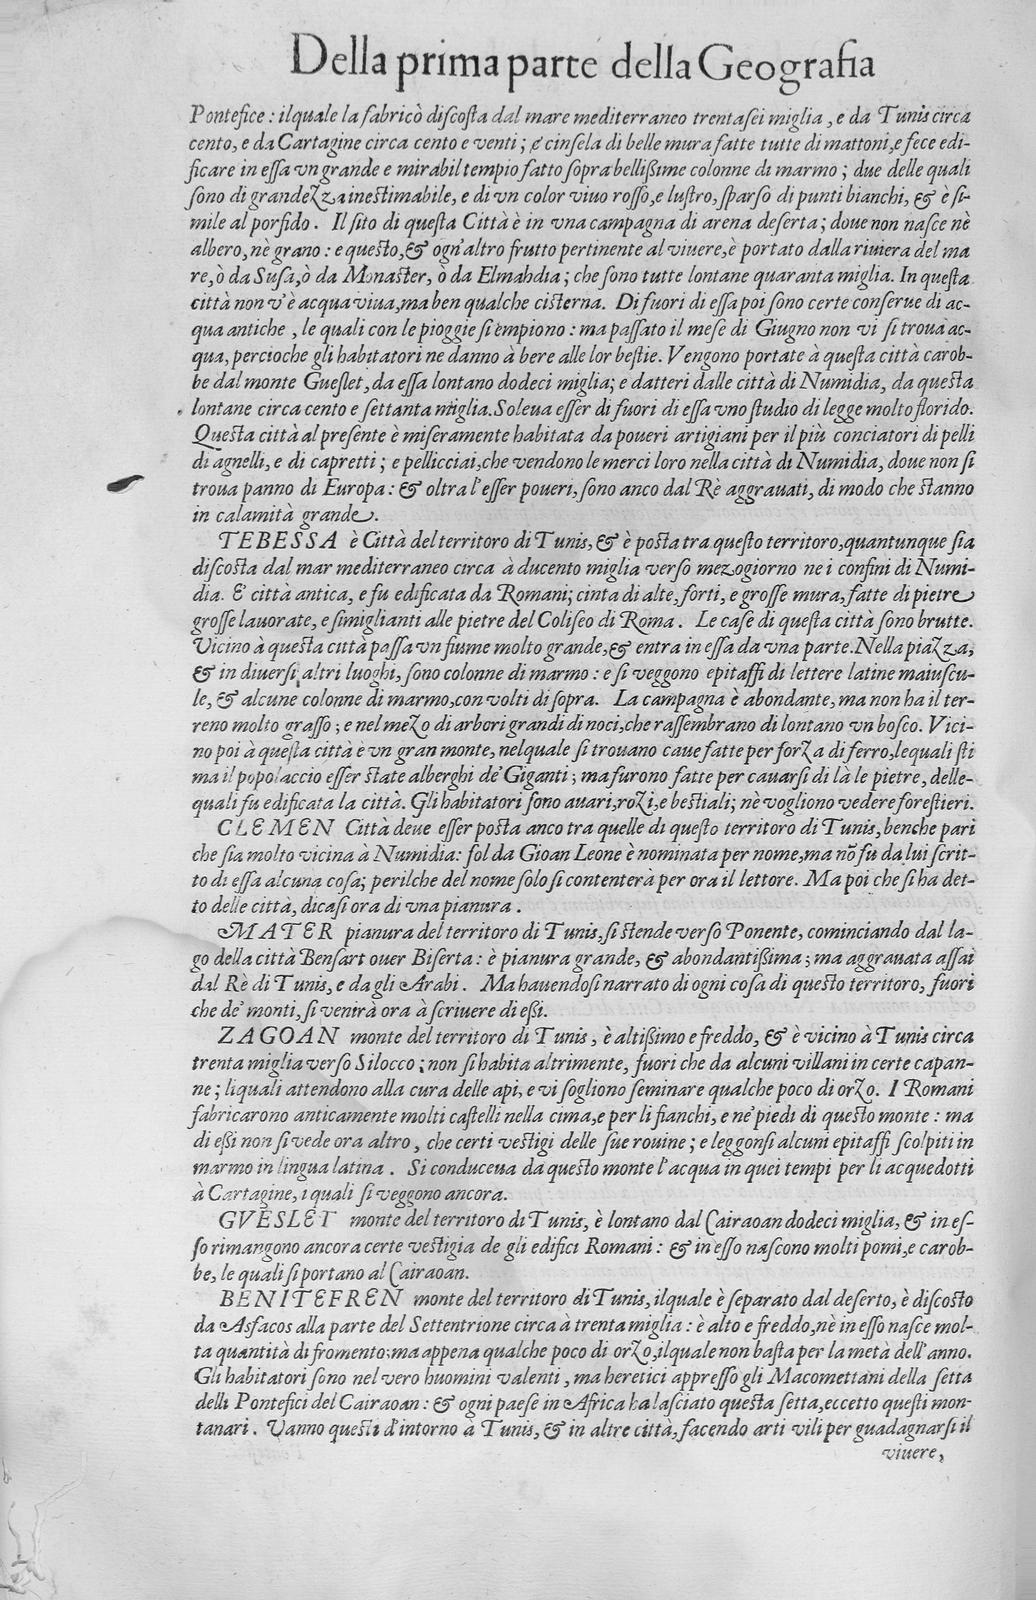 Della prima parte della Geografia
Pontefice: ilquale la fabricò discosta dal mare mediterraneo trentasei miglia, e da Tunis circa
cento, e da Cartagine circa cento e venti; & cinsela di belle mura fatte tutte di mattoni, e fece edi-
ficare in essa vn grande e mirabil tempio fatto sopra bellißime colonne di marmo; due delle quali
sono di grandezza inestimabile, e di vn color viuo rosso, e lustro, sparso di punti bianchi, & è si-
mile al porfido. Il sito di questa Città è in vna campagna di arena deserta; doue non nasce nè
albero, nè grano: e questo, & ogn'altro frutto pertinente al viuere, è portato dalla riuiera del ma
re, ò da Susa, ò da Monaster, ò da Elmahdia; che sono tutte lontane quaranta miglia. In questa
città non v'è acqua viua, ma ben qualche cisterna. Di fuori di essa poi sono certe conserue di ac-
qua antiche, le quali con le pioggie si empiono: ma passato il mese di Giugno non vi si troua ac-
qua, percioche gli habitatori ne danno à bere alle lor bestie. Vengono portate à questa città carob-
be dal monte Gueslet, da essa lontano dodeci miglia; e datteri dalle città di Numidia, da questa
lontane circa cento e settanta miglia. Soleua esser di fuori di essa vno studio di legge molto florido.
Questa città al presente è miseramente habitata da poueri artigiani per il più conciatori di pelli
di agnelli, e di capretti; e pellicciai, che vendono le merci loro nella città di Numidia, doue non si
troua panno di Europa: & oltra l'esser poueri, sono anco dal Rè aggrauati, di modo che stanno
in calamità grande.
TEBESSA è Città del territoro di Tunis, & è posta tra questo territoro, quantunque sia
discosta dal mar mediterraneo circa à ducento miglia verso mezogiorno ne i confini di Numi-
dia. E città antica, e fu edificata da Romani; cinta di alte, forti, e grosse mura, fatte di pietre
grosse lauorate, e simiglianti alle pietre del Coliseo di Roma. Le case di questa città sono brutte.
Vicino à questa città passa vn fiume molto grande, & entra in essa da vna parte. Nella piazza,
& in diuersi altri luoghi, sono colonne di marmo: e si veggono epitaffi di lettere latine maiuscu-
le, & alcune colonne di marmo, con volti di sopra. La campagna è abondante, ma non ha il ter-
reno molto grasso; e nel mezo di arbori grandi di noci, che rassembrano di lontano vn bosco. Vici-
no poi à questa città è vn gran monte, nelquale si trouano caue fatte per forza di ferro, lequali sti
ma il popolaccio esser state alberghi de' Giganti; ma furono fatte per cauarsi di là le pietre, delle-
quali fu edificata la città. Gli habitatori sono auari, rozi, e bestiali; nè vogliono vedere forestieri.
CLEMEN Città deue esser posta anco tra quelle di questo territoro di Tunis, benche pari
che sia molto vicina à Numidia: sol da Gioan Leone è nominata per nome, ma nõ fu da lui scrit-
to di essa alcuna cosa; perilche del nome solo si contenterà per ora il lettore. Ma poi che si ha det-
to delle città, dicasi ora di vna pianura.
MATER pianura del territoro di Tunis, si stende verso Ponente, cominciando dal la-
go della città Bensart ouer Biserta: è pianura grande, & abondantissima; ma aggrauata assai
dal Rè di Tunis, e da gli Arabi. Ma hauendosi narrato di ogni cosa di questo territoro, fuori
che de' monti, si venirà ora à scriuere di eßi.
ZAGOAN monte del territoro di Tunis, è altißimo e freddo, & è vicino à Tunis circa
trenta miglia verso Silocco; non si habita altrimente, fuori che da alcuni villani in certe capan-
ne; liquali attendono alla cura delle api, e vi sogliono seminare qualche poco di orzo. I Romani
fabricarono anticamente molti castelli nella cima, e per li fianchi, e ne' piedi di questo monte: ma
di eßi non si vede ora altro, che certi vestigi delle sue rouine; e leggonsi alcuni epitaffi scolpiti in
marmo in lingua latina. Si conduceua da questo monte l'acqua in quei tempi per li acquedotti
à Cartagine, i quali si veggono ancora.
GVESLET monte del territoro di Tunis, è lontano dal Cairaoan dodeci miglia, & in es-
so rimangono ancora certe vestigia de gli edifici Romani: & in esso nascono molti pomi, e carob-
be, le quali si portano al Cairaoan.
BENITEFREN monte del territoro di Tunis, ilquale è separato dal deserto, è discosto
da Asfacos alla parte del Settentrione circa à trenta miglia: è alto e freddo, nè in esso nasce mol-
ta quantità di fromento; ma appena qualche poco di orzo, ilquale non basta per la metà dell'anno.
Gli habitatori sono nel vero huomini valenti, ma heretici appresso gli Macomettani della setta
delli Pontefici del Cairaoan: & ogni paese in Africa ha lasciato questa setta, eccetto questi mon-
tanari. Vanno questi d'intorno à Tunis, & in altre città, facendo arti vili per guadagnarsi il
viuere,